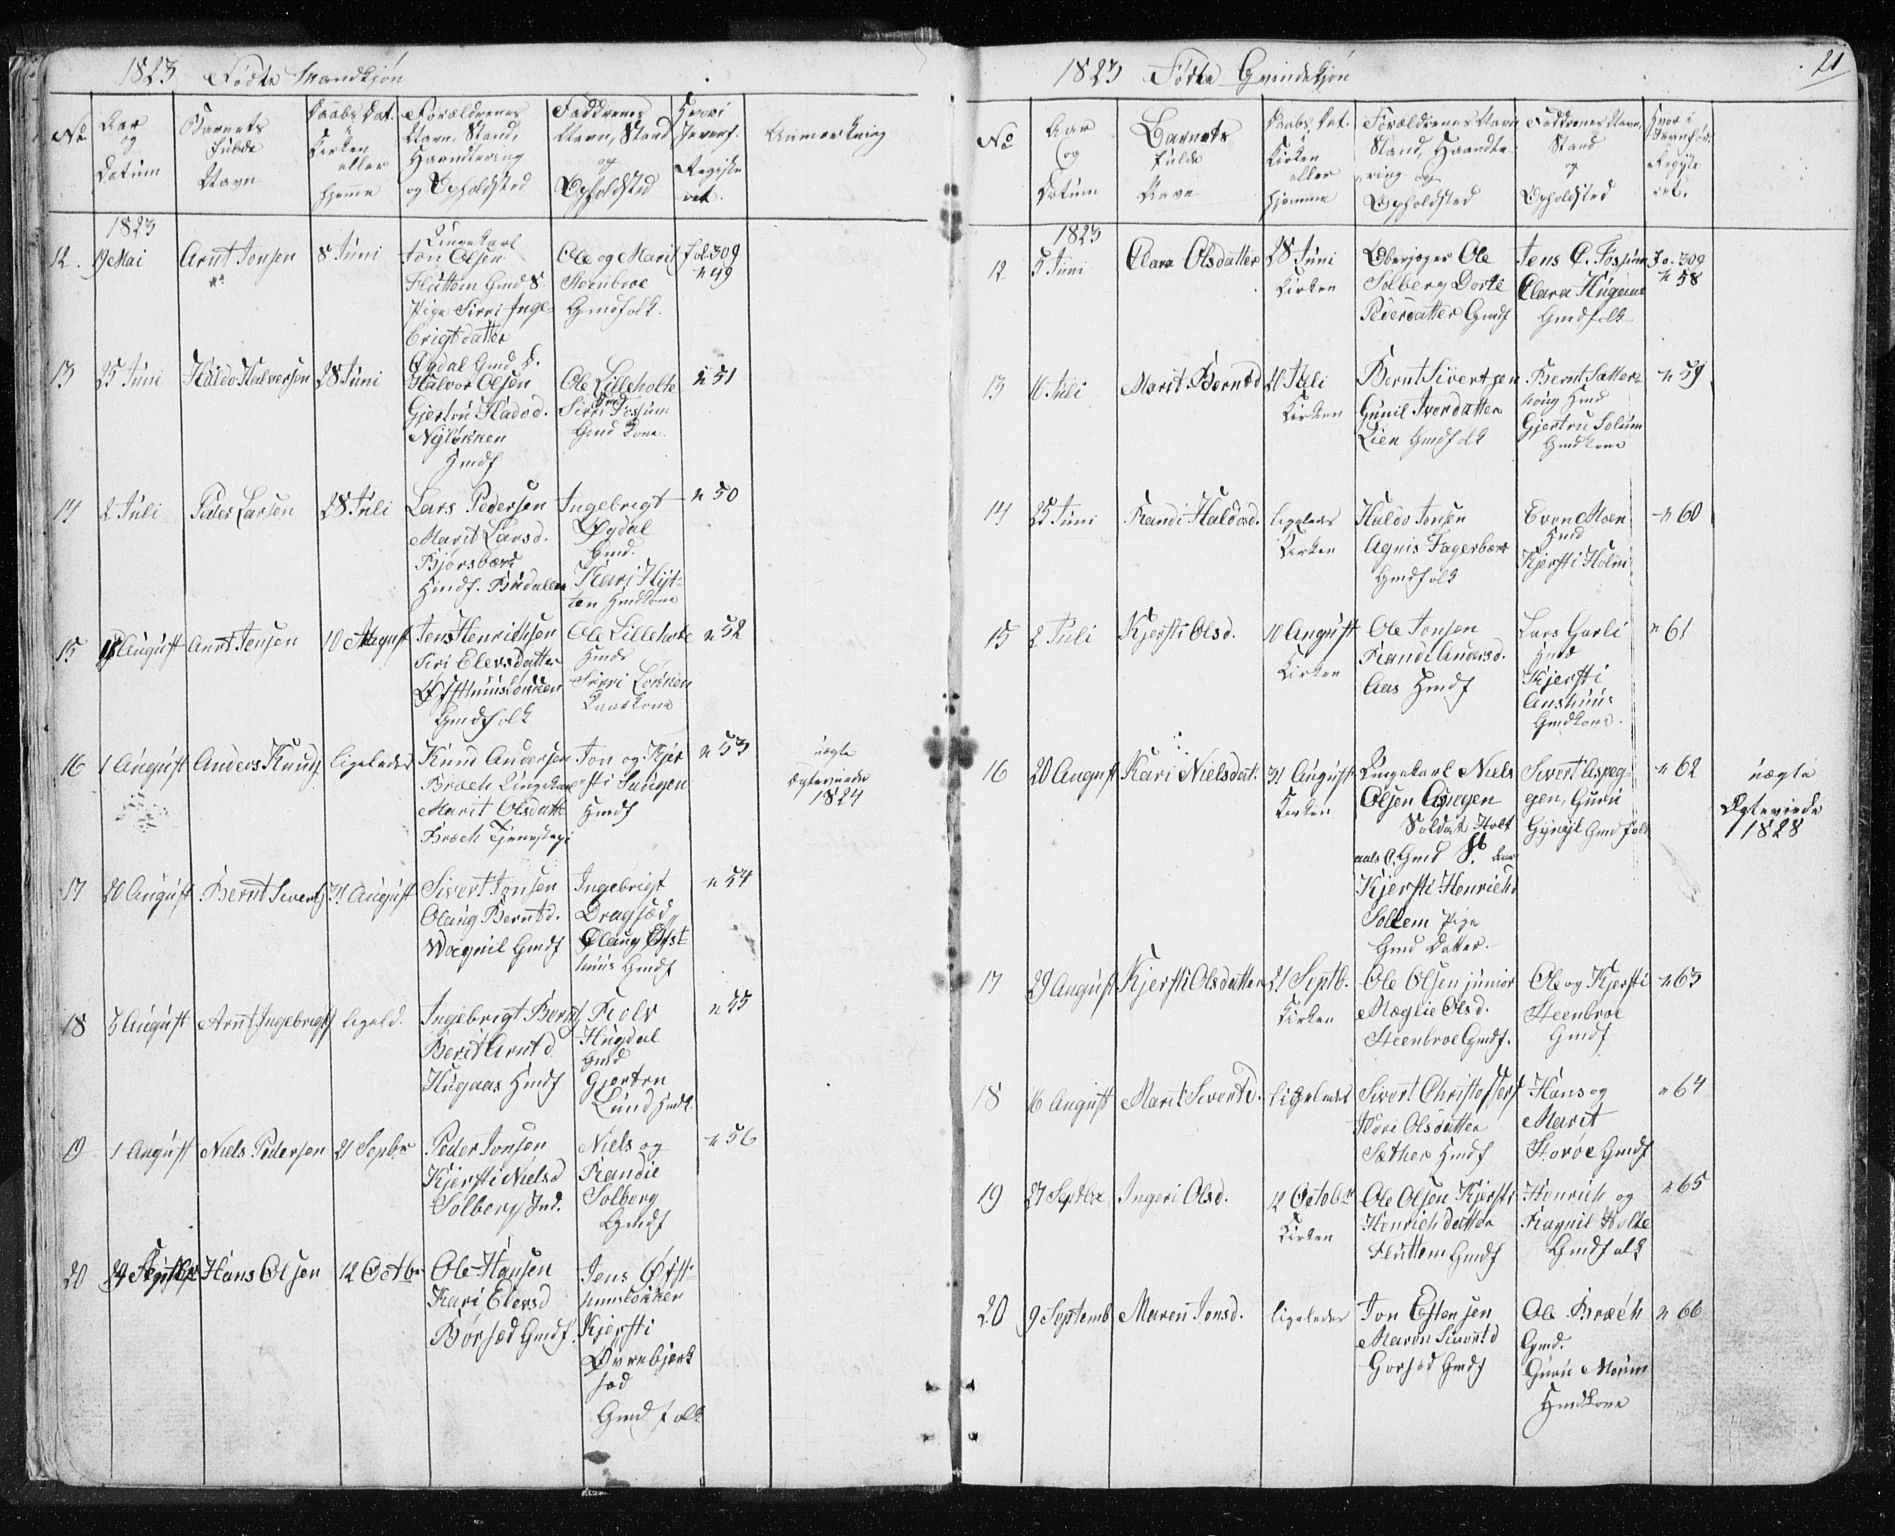 1823 Fødte Mandkjøn
No
Aar
og
Datum
Barnets
fulde
Navn
Daabs Dat.
i
Kirken
eller
hjemme
Forældrenes
Navn, Stand,
Haandtering
og Opholdsted
Faddrenes
Navn, Stand
og
Opholdsted
Hvori
Jevnf.
Registe
ret.
Anmerkning
1823
12. 19 Mai
Arnt Jonsen
8 Juni
Ungekarl
Jon Olsen
Fluttem Gmd S.
Pige Sirri Inge-
brigtdatter
Øgdal Gmd D.
Ole og Marit
Steenbroe
Gmdfolk.
Fol 309
n 49
13
25 Juni
Haldo Halversen
28 Juni
Halvor Olsen
Gjertru Hadod.
Nyløkken
Hmdf
Ole Lilleholte
Gmd
Sirri Fossum
Gmd Kone.
n 51
14
2 Juli
Peder Larsen
28 Juli
Lars Pedersen
Marit Larsd.
Bjørsbære
Hmdf. Budalen
Ingebrigt
Øgdal
Gmd.
Kari Hyt-
ten Hmdkone
n 50
15
August
Arnt Jensen
10 August
Jens Henrichsen
Siri Elevsdatter
Østhuusløkken
Gmdfolk
Ole Lilleholte
Hmd
Sirri Løkken
Kaarkone
n 52
16
1 August
Anders Knuds
ligeledes
Knud Andersen
Bræch Ungekarl
Marit Olsdatt
Bræch Tjenestepi
Jon og Kjer
sti Sungen
Hmdf
n 53
uægte
Ægteviede
1824
17
20 August
Bernt Siverts
31 August
Sivert Jonsen
Olaug Berntd.
Wognil Gmdf
Ingebrigt
Dragsæd,
Olaug Øyst
huus Gmdf
n 54
18
3 August
Arnt Ingebrigts
ligeled.
Ingebrigt Bernts
Berit Arntd
Hugaas Hmdf
Rolv
Hugdal
Gmd
Gjertru
Lund Hmdk
n 55
19
1 August
Niels Pedersen
21 Sepbr
Peder Jonsen
Kjersti Nielsd
Solberg Ind.
Niels og
Randie
Solberg
Gmdf
n 56
20
24 Septbr
Hans Olsen
12 Octbr
Ole Hansen
Kari Elevsd
Børsæd Gmdf.
Jens Øyst
huusløkken
Kjersti
Øvrebjerk
sæd
Gmdfolk
1823 Fødte Qvindekjøn
21
No
Aar
og
Datum
Barnets
fulde
Navn
Daabs Dat.
Kirken
eller
hjemme
Forældrenes Navn
Stand, Haandte
ring og
Opholdsted
Faddrenes Navn,
Stand
og
Opholdsted
Hvor i
Jevnfør.
Registe
ret.
1823
12
5 Juni
Clara Olsdatter
28 Juni
Kirken
Oberjæger Ole
Solberg Dorte
Pedersdatter Gmdf
Jens C. Fossum
Clara Hugaas
Gmdfolk
Fo. 309
n 58
13
16 Juli
Marit Berntd
20 Juli
Kirken
Bernt Sivertsen
Gunil Ivordatter
Lien Gmdfolk
Bernt Satter
houg Hmd
Gjertru Solum
Gmdkone
n 59
14
25 Juni
Randi Haldosd.
ligeledes
Kirken
Haldo Jonsen
Agnis Fagerbære
Gmdfolk
Even Moen
Hmd
Kjersti Holm
n 60
15
2 Juli
Kjersti Olsd.
10 August
Kirken
Ole Jonsen
Randi Andersd.
Aas Hmdf
Lars Garli
Hmd
Kjersti
Anshuus
Gmdkone.
n 61
16
20 August
Kari Nielsdat.
31 August
Kirken
Ungekarl Niels
Olsen Aungen
Soldat Holt
aals C. Gmd
Kjersti Henrichs
Sollem Pige
Gmd Datter.
Sivert Aspeg-
gen, Guru
Gynild Gmdfolk
n 62
uægte
Ægteviede
1828
17
29 August
Kjersti Olsdatter
21 Septb.
Kirken
Ole Olsen junior
Mæglie Olsd.
Steenbroe Gmdf.
Ole og Kjersti
Steenbroe
Gmdf
n 63
18
16 August
Marit Sivertd.
ligeledes
Sivert Christoffers
Kari Olsdatter
Sæther Hmdf
Hans og
Marit
Storøe Gmdf
n 64
19
27 Septbr
Ingeri Olsd.
12 Octobr
Kirken
Ole Olsen Kjersti
Henrichdatter
Fluttem Gmdf
Henrich og
Ragnil Holte
Gmdfolk
n 65
20
9 Septemb
Maren Jonsd.
ligeledes
Jon Estensen
Maren Sivertd
Gorsæd Gmdf
Ole Bræch
Gmd.
Guru Moum
Hmdkone
n 66